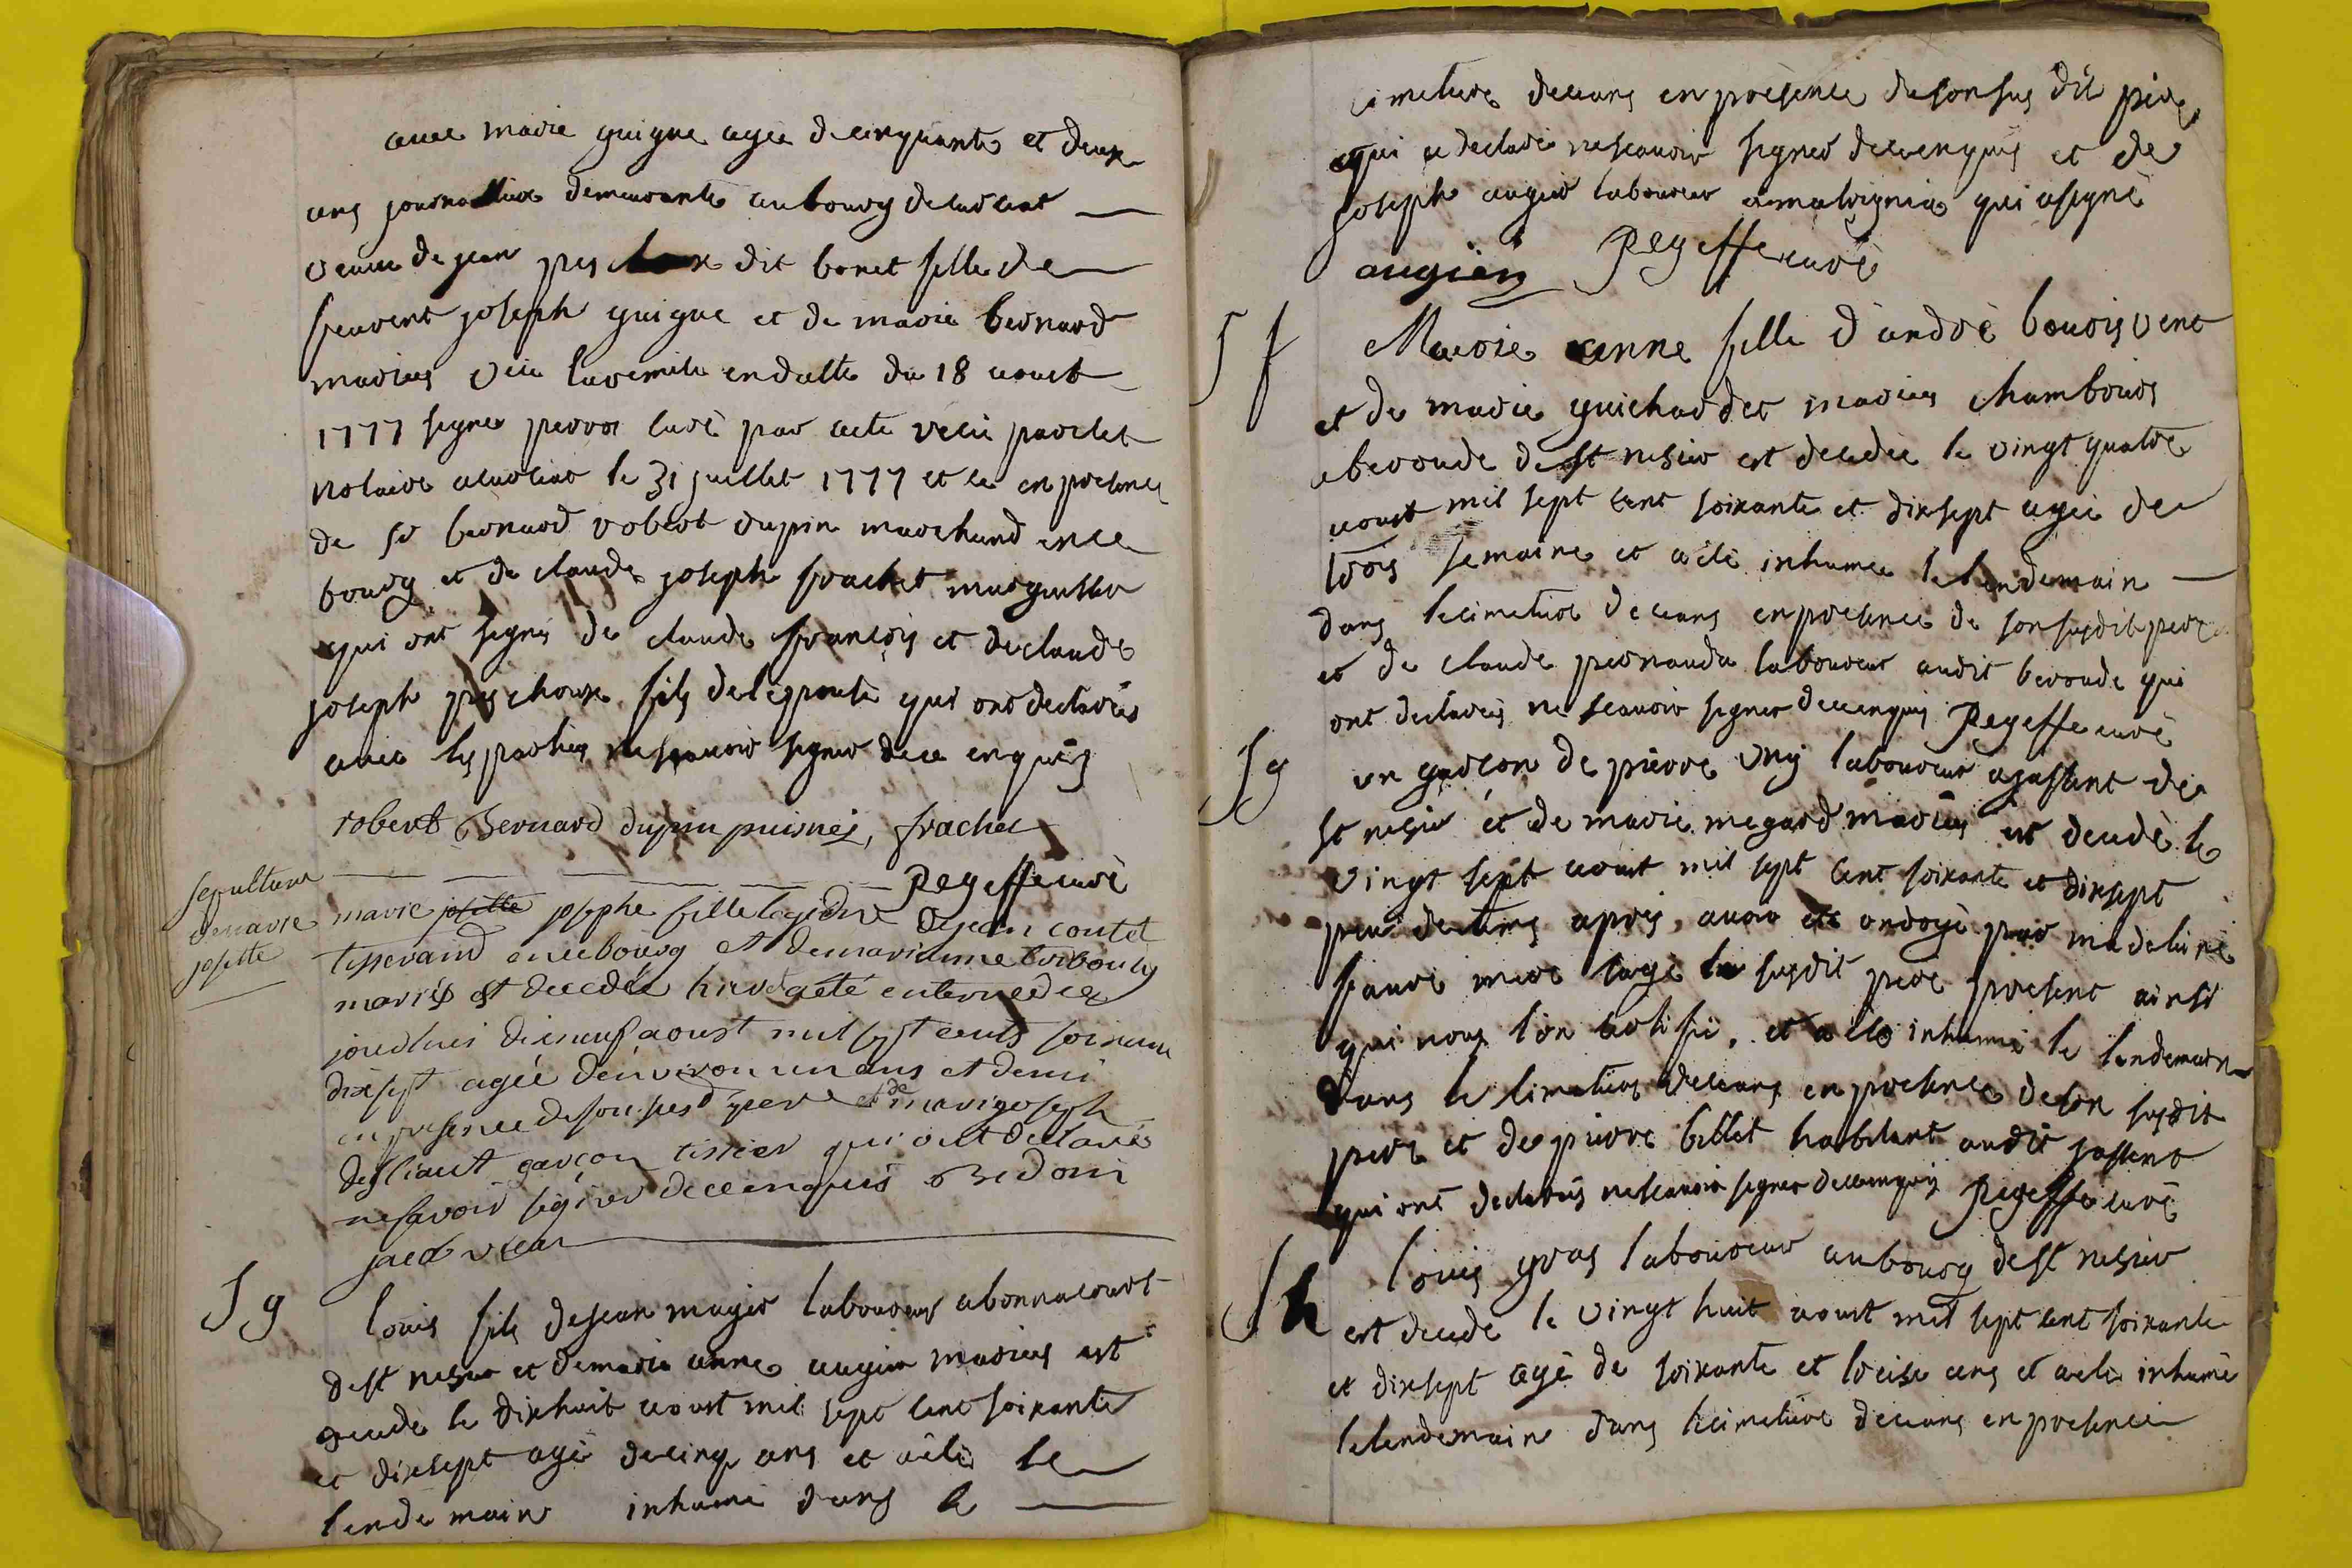 avec marie guigue agée de cinquante et deux
ans journalliere demeurante au bourg de curciat
veuve de jean peschoux dit bonet fille de
feuvent joseph guigue et de marie bernard
mariés veu la remise en datte du 18 aoust
1777 signe perror curé par acte réçu parolet
notaire a curciat le 31 juillet 1777 et ce en presence
de sr bernard robert dupin marchand en ce
bourg et de claude joseph frachet marguillier
qui ont signés de claude françois et de claude
joseph peschoux fils de lepouse qui ont declarés
avec les parties ne scavoir signer de ce enquis
robert Bernard dupin puisnés, frachet
Regeffe curé
sepulture
de marie
josette
marie josette josephe fille legitime de jean coutet
tisserand en ce bourg et de marianne
mariés est decedée hier et a été enterrée ce
jourdhui dixneuf aoust mil sept cents soixante
dix sept agée d'environ un ans et demi
en presence de son susd pere et de marie joseph
garçon tissier qui ont declarés
ne savoir signer de ce enquis
vicar
S g
louis fils de jean magis laboureur a bonnacourt
de st nesier et de marie anne augier mariés est
decedé le dixhuit aoust mil sept cent soixante
et dixsept agé de cinq ans et a été le
lendemain inhumé dans le
cimetiere de ceans en presence de son sus dit pere
qui a declaré ne scavoir signer de ce enquis et de
joseph augier laboureur a malvignia qui a signé
augier Regeffe curé
S f
Marie anne fille d'andré bouvisvent
et de marie guichardet mariés
a beroude de st nesier est decedée le vingt quatre
aoust mil sept cent soixante et dixsept agée de
trois semaine et a été inhumée le lendemain
dans le cimetiere de ceans en presence de son susdit pere
et de claude pernauda laboureur audit beroude qui
ont declarés ne scavoir signer de ce enquis Regeffe curé
S g
un garcon de pierre uny laboureur a jassent de
st nesier et de marie megard mariés est decedé le
vingt sept aoust mil sept cent soixante et dixsept
peu de tems après, avoir été ondoyé par madelaine
favre mere sage le susdit pere present ainsi
qui nous l'on certifié, et a été inhumé le lendemain
dans le cimetiere de ceans en presence de son susdit
pere et de pierre billet habitant audit jassent
qui ont declarés ne scavoir signer de ce enquis Regeffe curé
S h
louis gras laboureur au bourg de st nesier
est decedé le vingt huit aoust mil sept cent soixante
et dixsept agé de soixante et treise ans et a été inhumé
le lendemain dans le cimetiere de ceans en presence